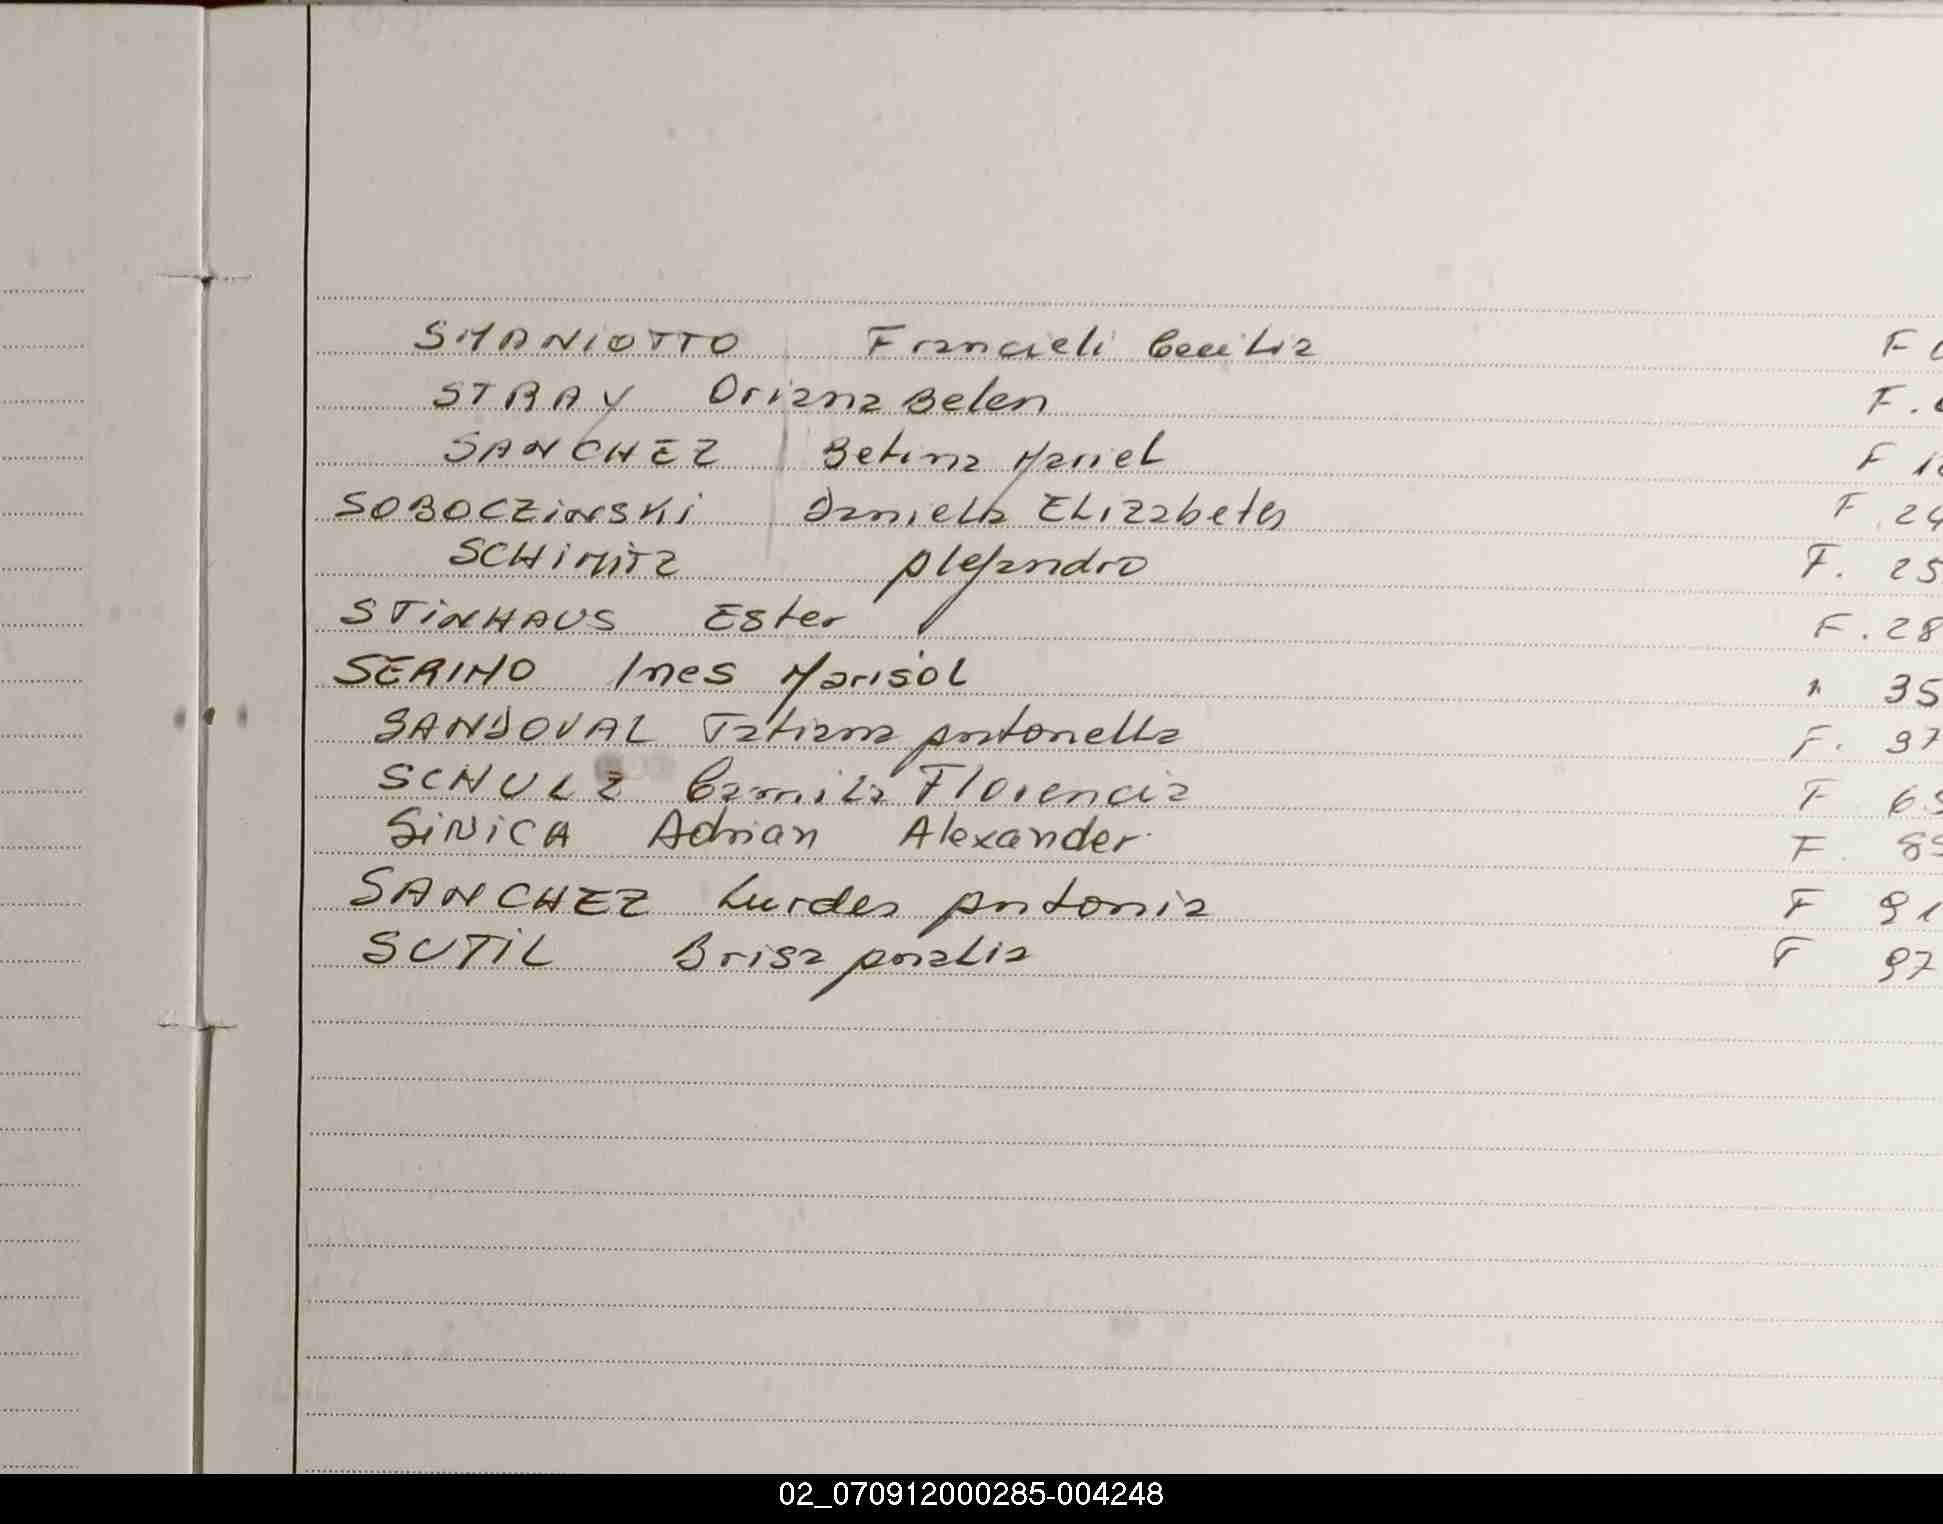 SMANIOTTO Francieli Cecilia F
STRAY Oriana Belen F.
SANCHEZ Betina Mariel F
SOBOCZINSKI Daniella Elizabeth F 24
SCHIMITZ Alejandro F. 25
STINHAUS Ester F. 28
SERIMO Ines Marisol " 35
SANDOVAL Tatiana Antonella F. 37
SCHULZ Camila Florencia F 65
SINICA Adrian Alexander F 85
SANCHEZ Lurdes Antonia F 91
SUTIL Brisa Analia F 97
02_070912000285-004248